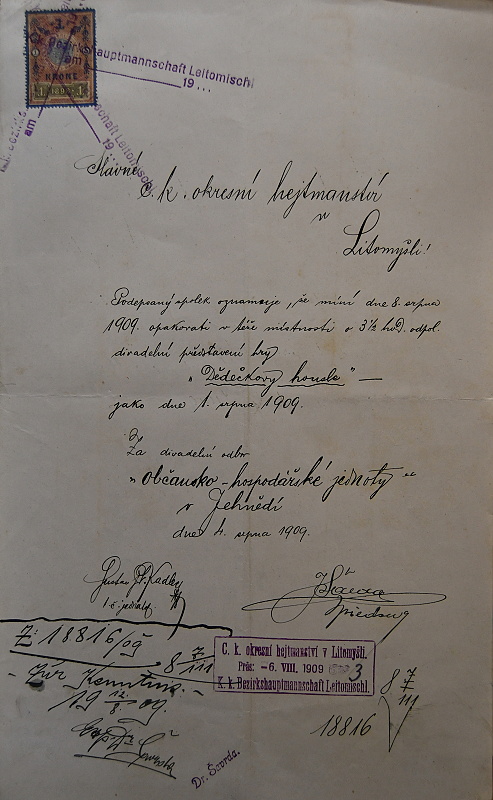 1
KRONE
1 1898 1
Bezirkshauptmannschaft Leitomischl
am 19...
am 19...
Slavné
c. k. okresní hejtmanství
v
Litomyšli!
Podepsaný spolek oznamuje, že míní dne 8. srpna
1909. opakovati v téže místnosti o 3 1/2 hod. odpol.
divadelní představení hry
„Dědečkovy housle" —
jako dne 1. srpna 1909.
Za divadelní odbor
„Občansko-hospodářské jednoty"
v Jehnědí
dne 4. srpna 1909.
Gustav Kadlec
t. č. jednatel
Z: 18816/09
8 7/III
19 12/8. 09.
C. k. okresní hejtmanství v Litomyšli.
Präs: -6. VIII. 1909 3
K. k. Bezirkshauptmannschaft Leitomischl.
8 7/III
18816
Dr. Švorda.